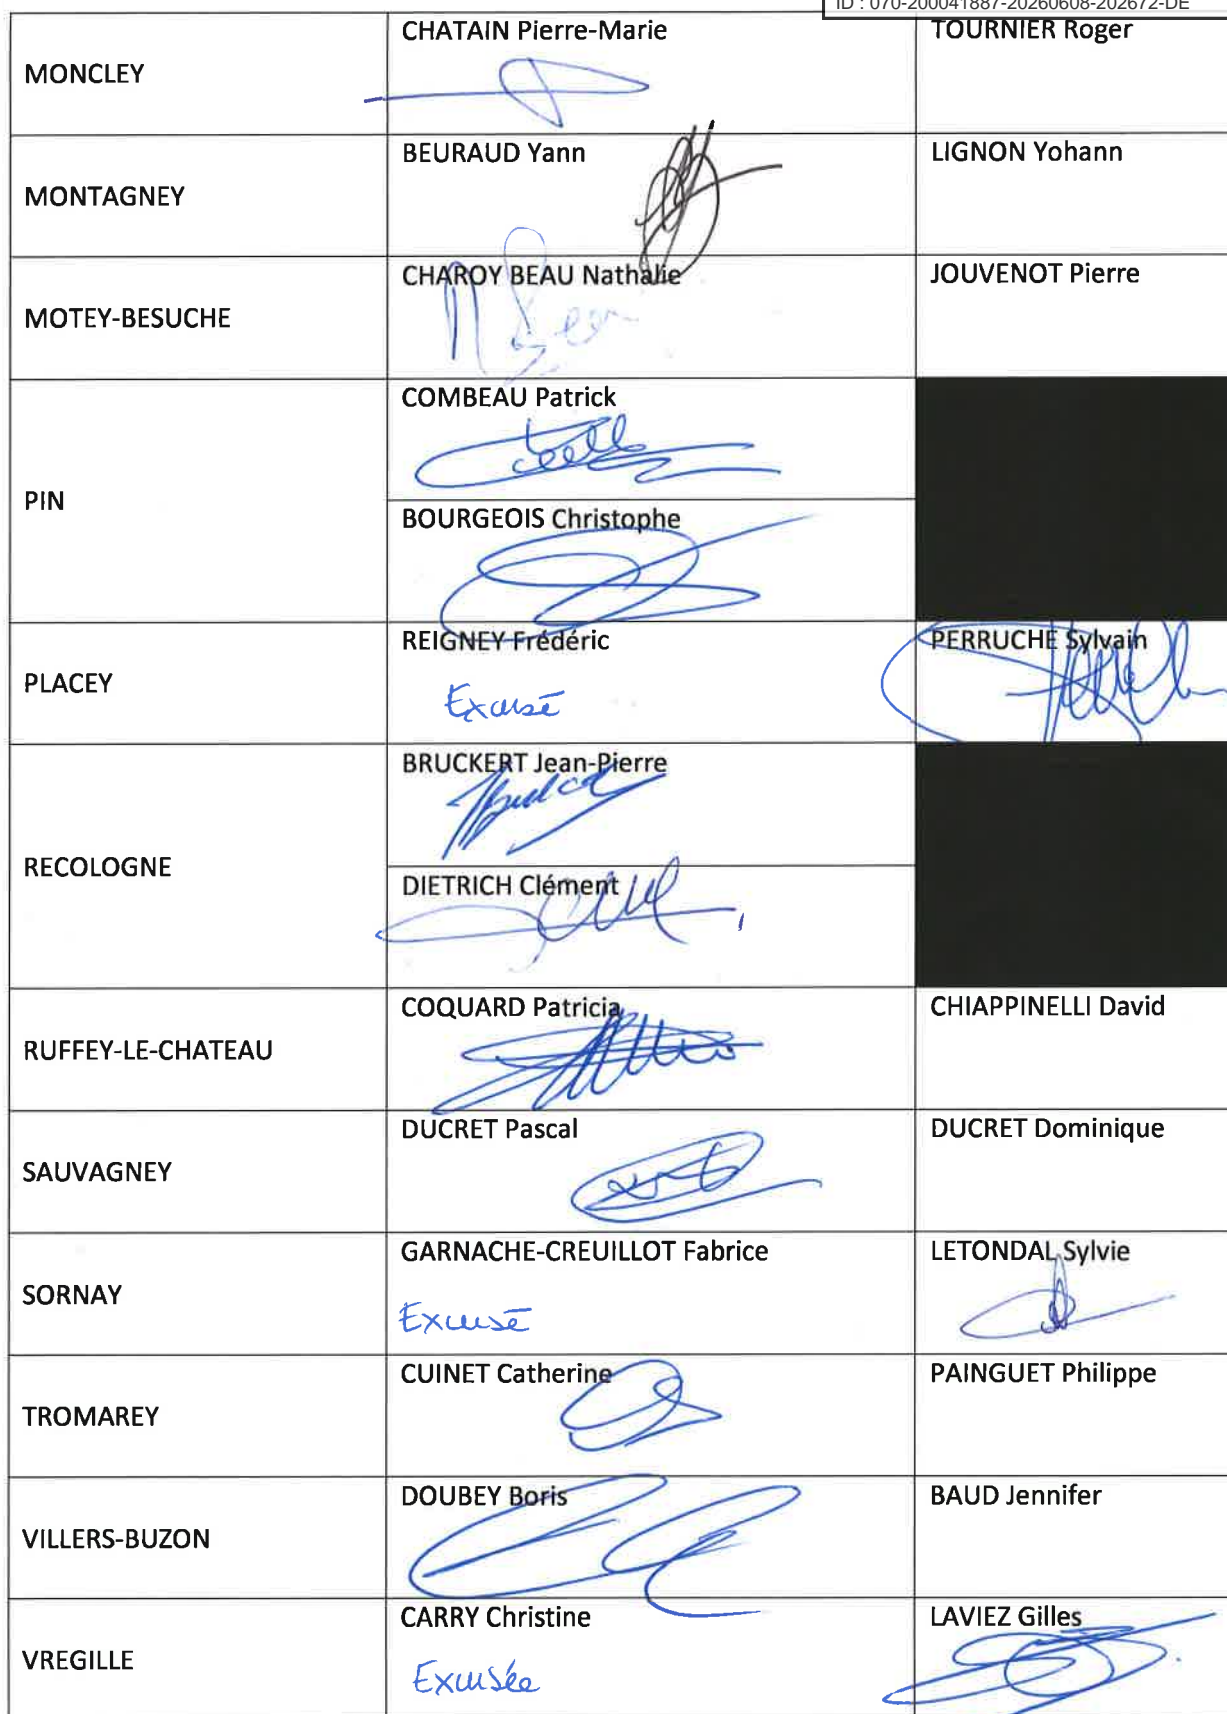 ID : 070-200041887-20260608-202672-DE
MONCLEY
CHATAIN Pierre-Marie
TOURNIER Roger
MONTAGNEY
BEURAUD Yann
LIGNON Yohann
MOTEY-BESUCHE
CHAROY BEAU Nathalie
JOUVENOT Pierre
PIN
COMBEAU Patrick
BOURGEOIS Christophe
PLACEY
REIGNEY Frédéric
Excusé
PERRUCHE Sylvain
RECOLOGNE
BRUCKERT Jean-Pierre
DIETRICH Clément
RUFFEY-LE-CHATEAU
COQUARD Patricia
CHIAPPINELLI David
SAUVAGNEY
DUCRET Pascal
DUCRET Dominique
SORNAY
GARNACHE-CREUILLOT Fabrice
Excusé
LETONDAL Sylvie
TROMAREY
CUINET Catherine
PAINGUET Philippe
VILLERS-BUZON
DOUBEY Boris
BAUD Jennifer
VREGILLE
CARRY Christine
Excusée
LAVIEZ Gilles